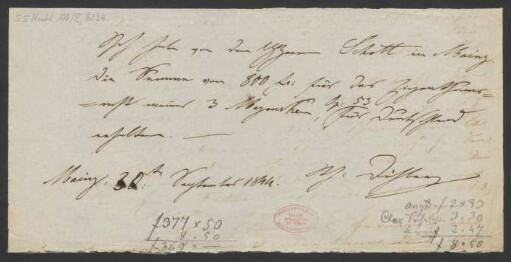 55 Nachl 100/B, 8134
Ich habe von den Herren Schott in Mainz
die Summe von 800 fr: für das Eigenthums-
=recht meiner 3 Mazurken, Op: 53 für Deutschland
erhalten. —
Mainz. 30ten September 1844.
f 377 x 50
8. 50
f 369 —
2 x 33
3. 30
2. 47
f 8. 50